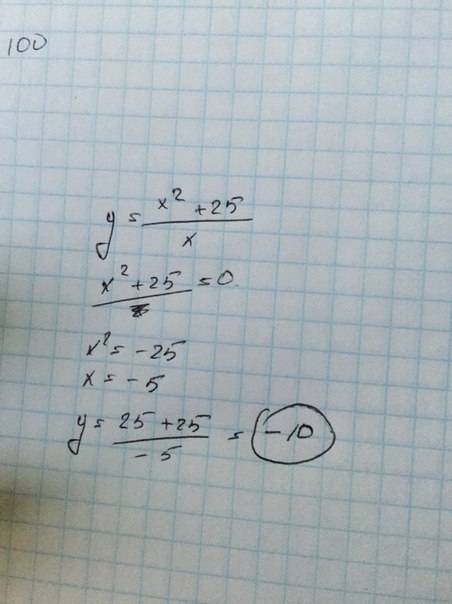 100
y = x² + 25 / x
x² + 25 / x = 0
x² = - 25
x = - 5
y = 25 + 25 / - 5 = - 10